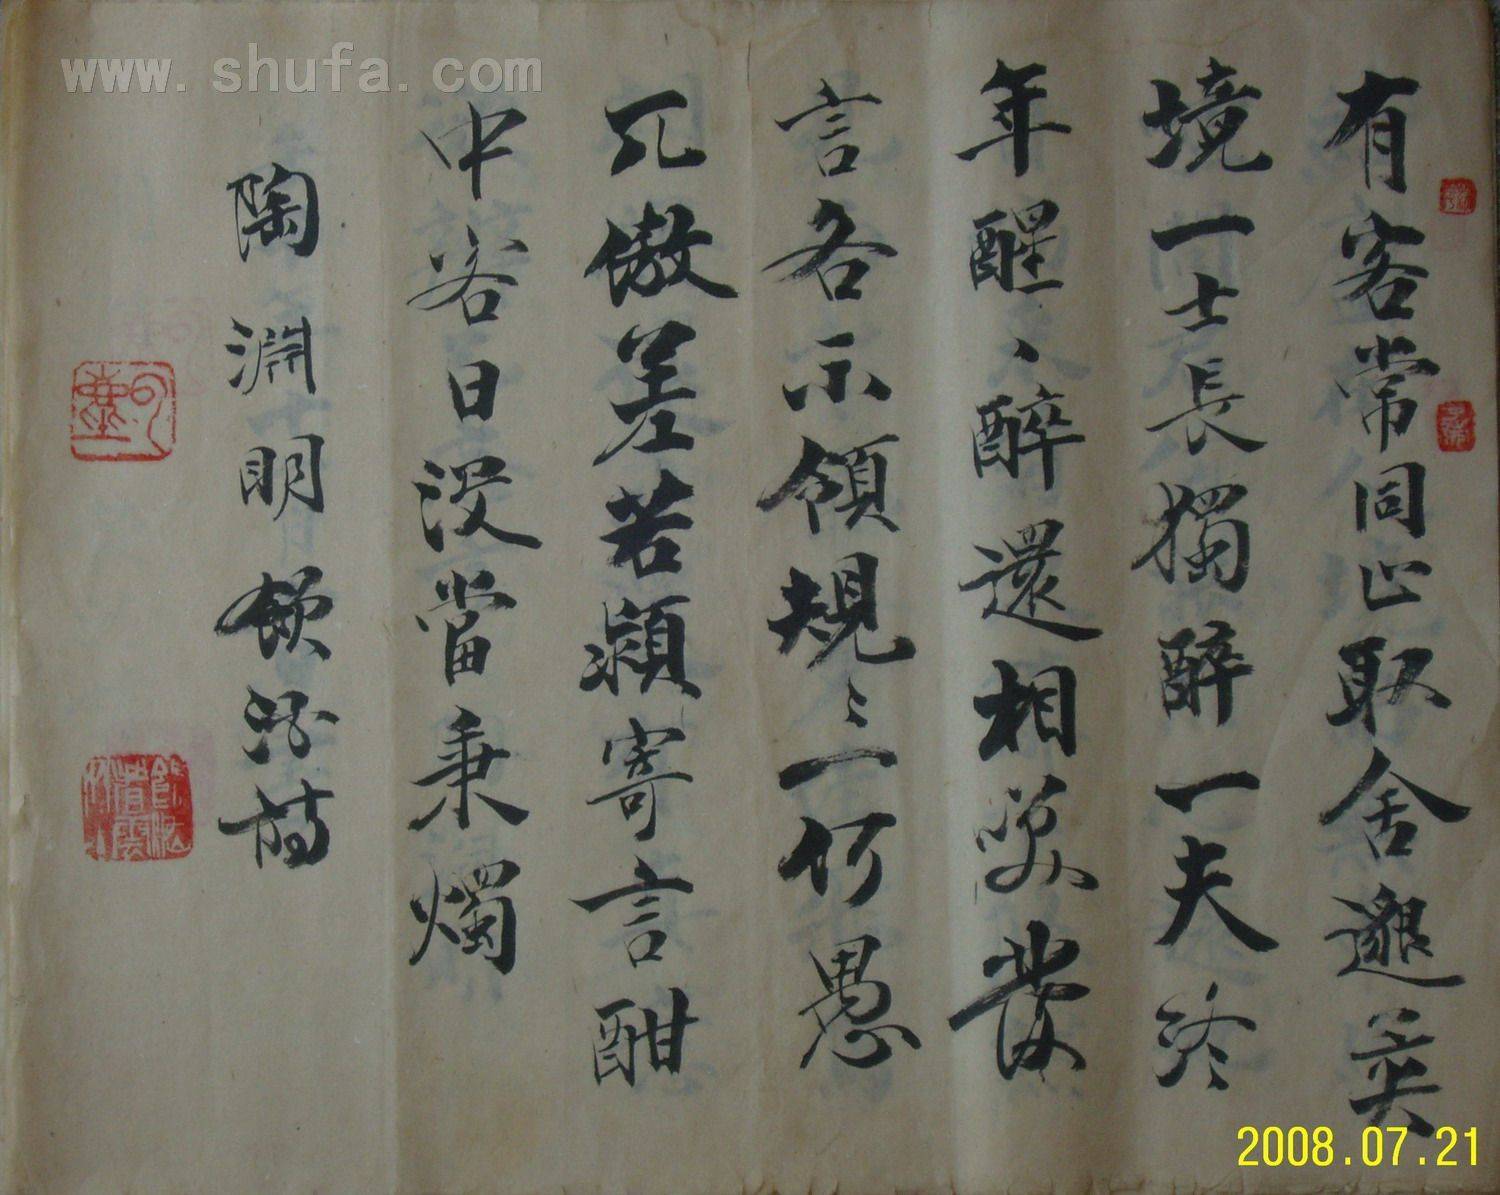 www.shufa.com
有客常同止取舍邈異
境一士長獨醉一夫終
年醒、醉還相笑發
言各不領規〻一何愚
兀傲差若穎寄言酣
中客日没當秉燭
陶淵明飲酒詩
2008.07.21